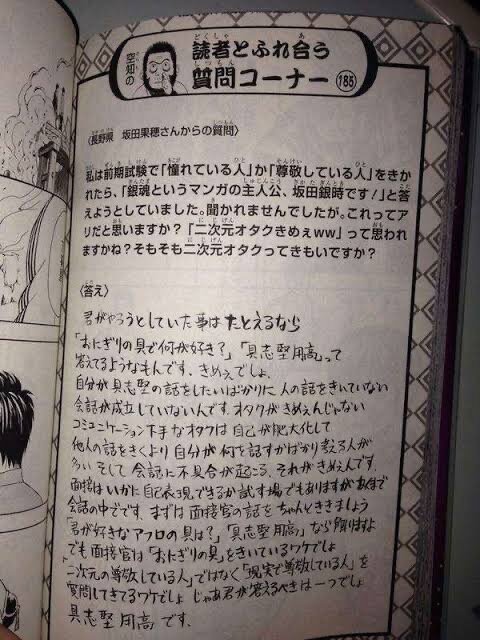 空知の
読者とふれ合う
質問コーナー 185
〈長野県 坂田果穂さんからの質問〉
私は前期試験で「憧れている人」か「尊敬している人」をきか
れたら、「銀魂というマンガの主人公、坂田銀時です！」と答
えようとしていました。聞かれませんでしたが。これってア
リだと思いますか？「二次元オタクきめぇww」って思われ
ますかね？そもそも二次元オタクってきもいですか？
〈答え〉
君がやろうとしていた事はたとえるなら
「おにぎりの具で何が好き？」「具志堅用高」って
答えてるようなもんです。きめぇでしょ。
自分が具志堅の話をしたいばかりに人の話をきいていない
会話が成立していないんです。オタクがきめぇんじゃない
コミュニケーション下手なオタクは自己が肥大化して
他人の話をきくより自分が何を話すかばかり考える人が
多い そして会話に不具合が起こる、それがきめぇんです。
面接はいかに自己表現できるか試す場でもありますがあくまで
会話の中でです。まずは面接官の話をちゃんとききましょう
「君が好きなアフロの具は？」「具志堅用高」なら解りますよ
でも面接官は「おにぎりの具」をきいているワケでしょ
「二次元の尊敬している人」ではなく「現実で尊敬している人」を
質問してきてるワケでしょ じゃあ君が答えるべきは一つでしょ
具志堅用高です。